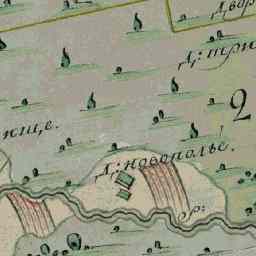 Двор
Д: три
2
ище.
Д: новополье
ор: